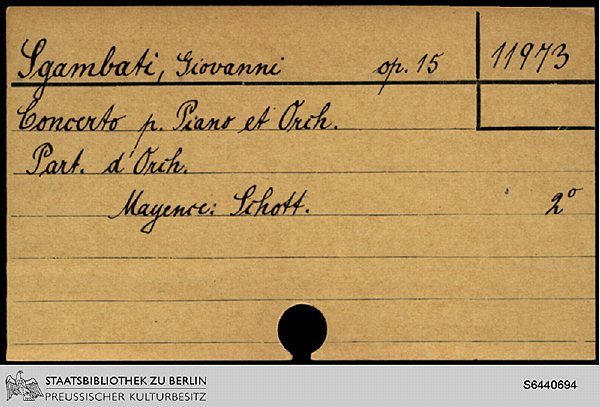 Sgambati, Giovanni op. 15 11973
Concerto p. Piano et Orch.
Part. d'Orch.
Mayence: Schott. 2°
STAATSBIBLIOTHEK ZU BERLIN
PREUSSISCHER KULTURBESITZ
S6440694